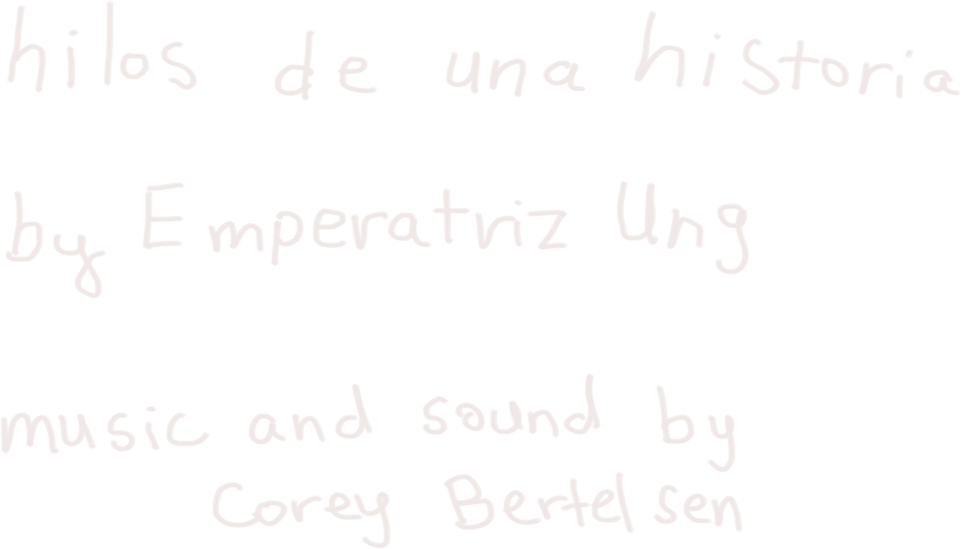 hilos de una historia
by Emperatriz Ung
music and sound by
Corey Bertelsen